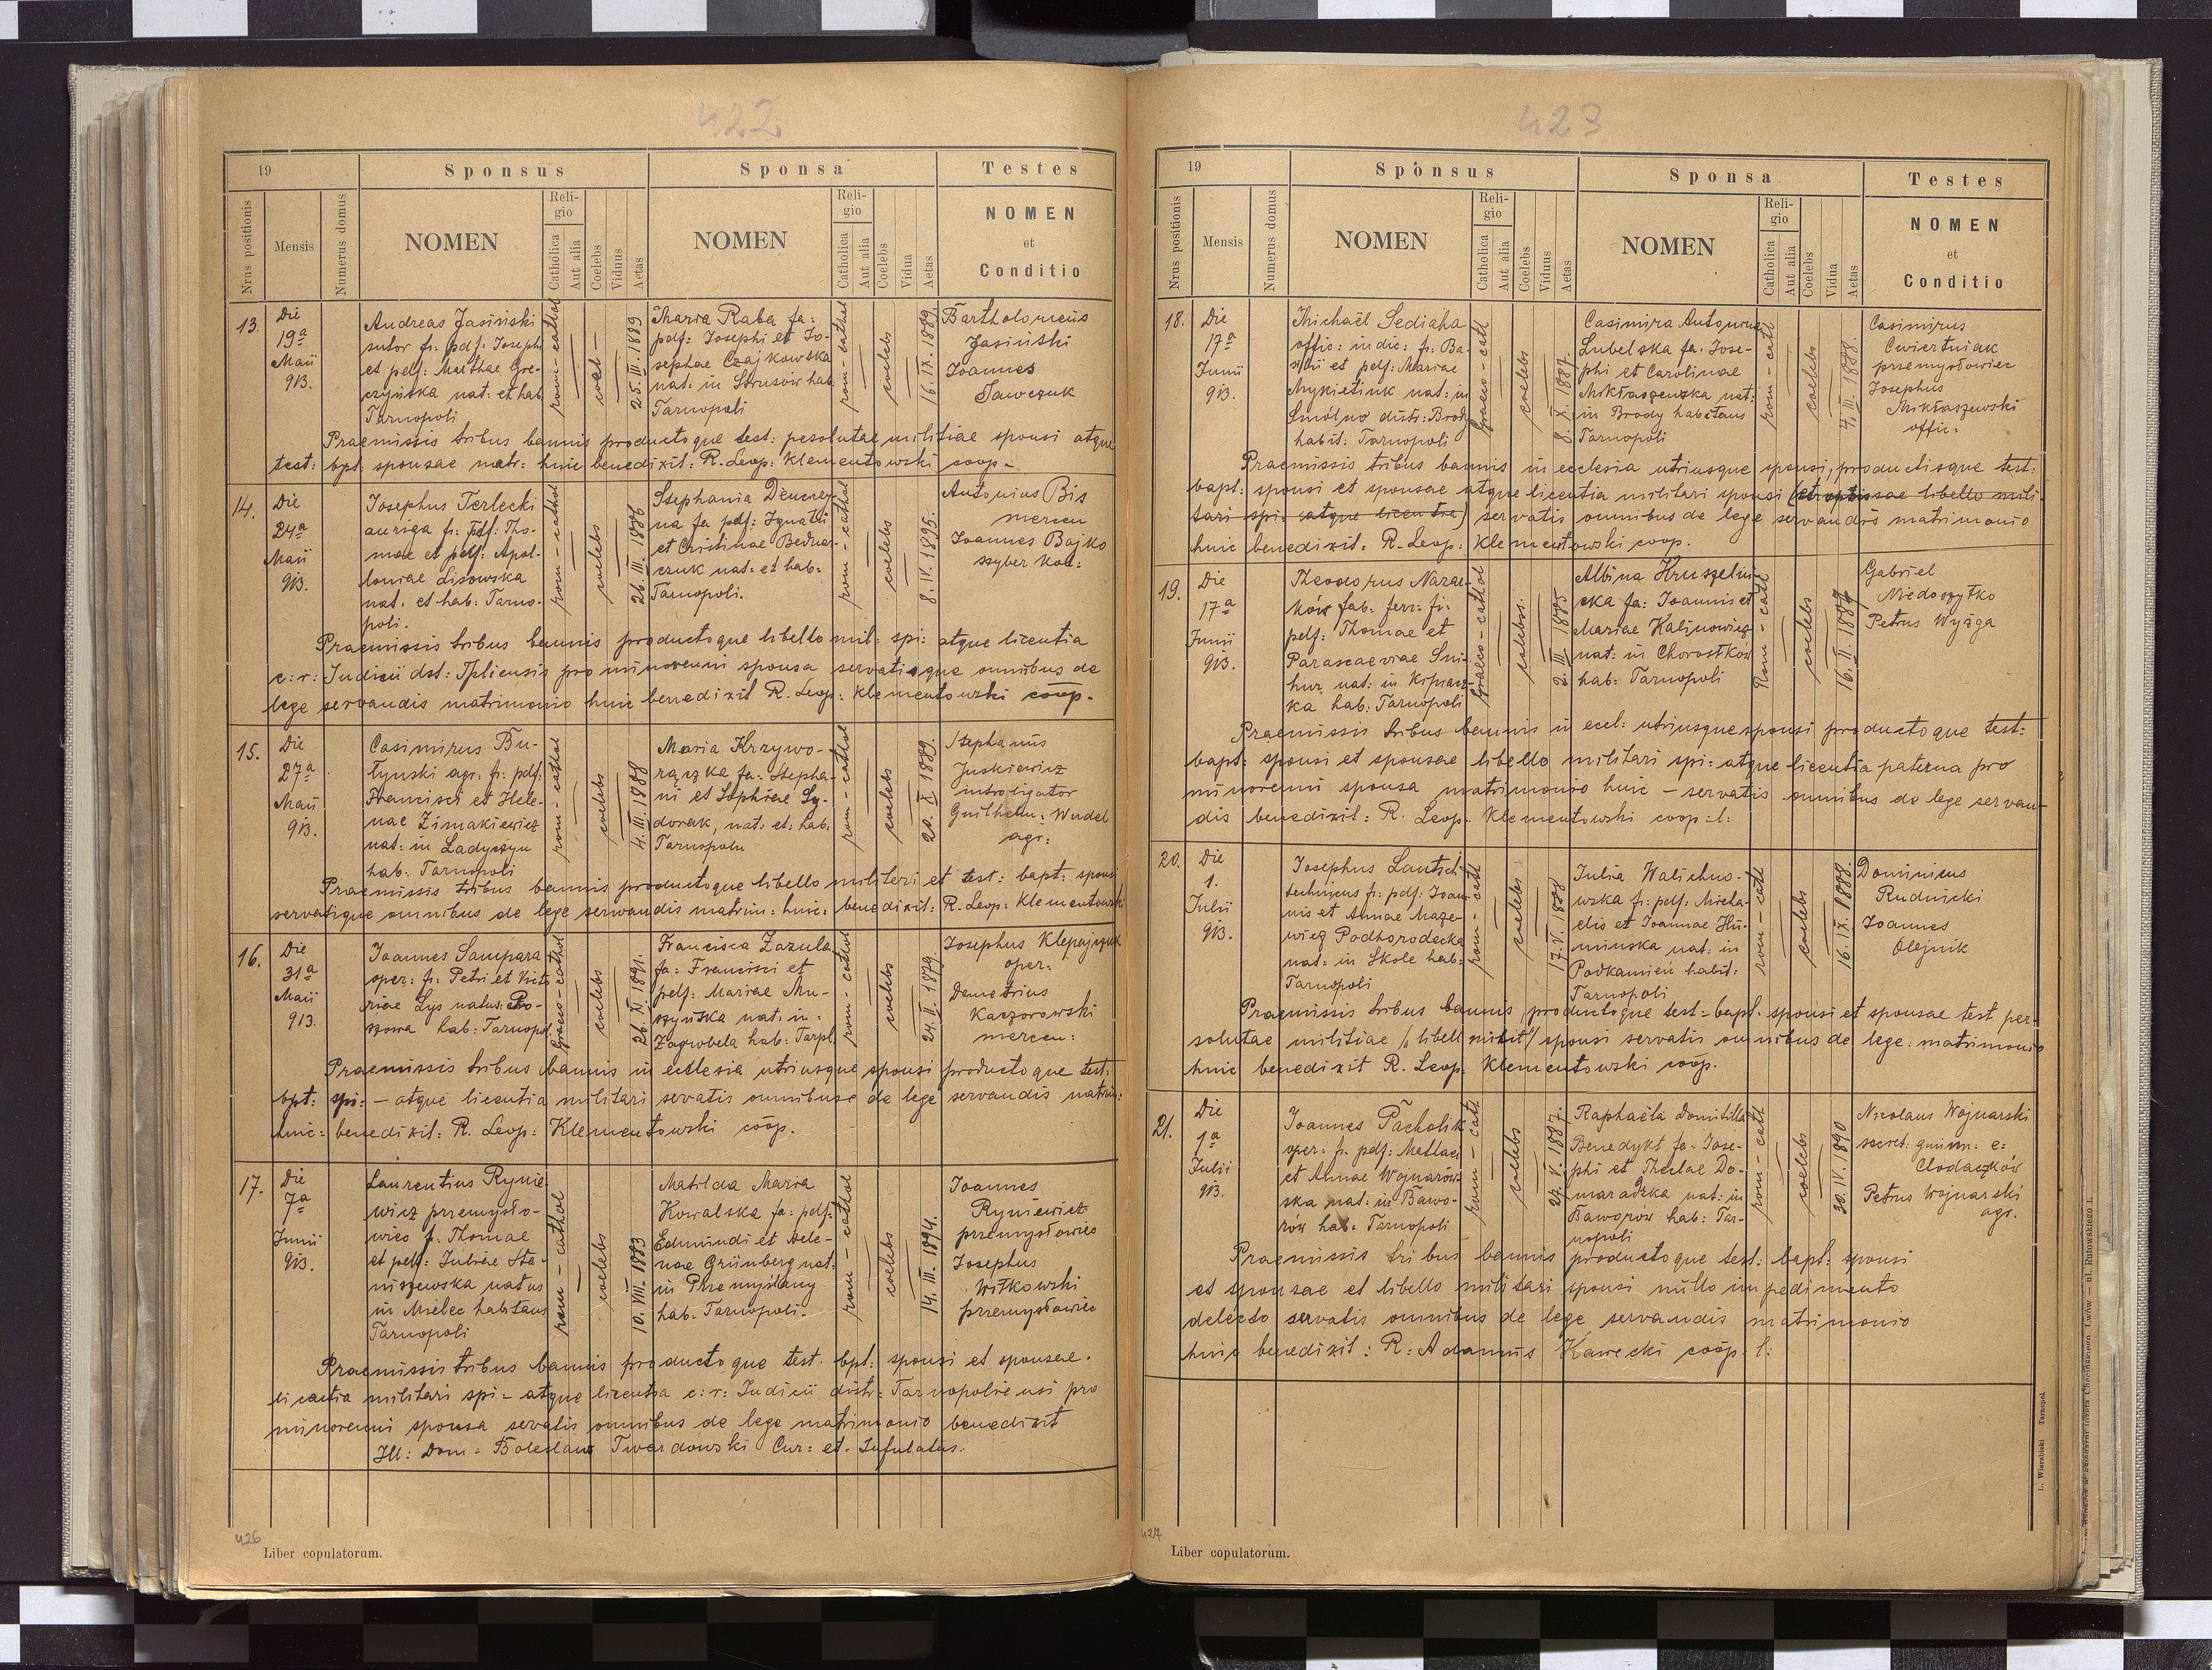 422
19
Sponsus
Sponsa
Testes
Nrus positionis
Mensis
Numerus domus
NOMEN
Religio
Catholica
Aut alia
Coelebs
Viduus
Aetas
NOMEN
Religio
Catholica
Aut alia
Coelebs
Vidua
Aetas
NOMEN
et
Conditio
13.
Die
19a
Maii
913.
Andreas Jasiński
sutor fi: pdf: Josephi
et pdf: Marthae Gre-
czyńska nat: et hab
Tarnopoli
rom-cathol
coel-
25. III. 1889
Maria Raba fa:
pdf: Josephi et Jo-
sephae Czajkowska
nat: in Strusów hab
Tarnopoli
rom-cathol
coelebs
16. IX. 1889.
Bartholomeus
Jasiński
Joannes
Sawczuk
Praemissis tribus bannis productoque test: persolutae militiae sponsi atque
test: bpt: sponsae matr: huic benedixit: R. Leop: Klementowski coop-
14.
Die
24a
Maii
913.
Josephus Terlecki
auriga fi: pdf: Tho-
mae et pdf: Apol-
loniae Lisowska
nat. et hab: Tarno-
poli.
rom-cathol
coelebs
26. III. 1886
Stephania
na fa pdf: Ignatii
et Cristinae Bednar-
czuk nat: et hab:
Tarnopoli.
rom-cathol
coelebs
8. IV. 1895.
Antonius Bis
mercen
Joannes Bajko
szyber kol:
Praemissis tribus bannis productoque libello mil: spi: atque licentia
c: r: Judicii dst: Tpliensis pro minorenni sponsa servatisque omnibus de
lege servandis matrimonio huic benedixit R. Leop: Klementowski coop-
15.
Die
27a
Maii
913.
Casimirus Bu-
tyński agr. fi: pdf:
Francisci et Hele-
nae Zimakiewicz
nat: in Ładyczyn
hab: Tarnopoli
rom-cathol
coelebs
4. III. 1888
Maria Krzywo-
rączka fa: Stepha-
ni et Sophiae Sy-
dorak, nat: et: hab:
Tarnopolu
rom-cathol
coelebs
20. X. 1889.
Stephanus
Juskiewicz
introligator
Guilhelm: Wudel
agr:
Praemissis tribus bannis productoque libello militari et test: bapt: sponsi
servatique omnibus de lege servandis matrim: huic: benedixit: R. Leop: Klementowski
16.
Die
31a
Maii
913.
Joannes Sampara
oper: fi: Petri et Victo
riae Lys natus:
hab: Tarnopol
graeco-cathol
coelebs
26 XI 1891.
Francisca Zazula
fa: Francisci et
pdf: Mariae Mu-
szyńska nat: in:
Zagrobela hab: Tarpl.
rom-cathol
coelebs
24. II. 1879.
Josephus Klepajczuk
oper:
Demetrius
Kaczorowski
mercen:
Praemissis tribus bannis in ecclesia utriusque sponsi productoque test:
bpt: spi: - atque licentia militari servatis omnibuse de lege servandis matrim:
huic: benedixit: R. Leop: Klementowski coop.
17.
Die
7a
Junii
913.
Laurentius Rynie
wicz przemysło-
wiec f. Thomae
et pdf: Juliae Sta-
niszewska natus
in Mielec habitans
Tarnopoli
rom-cathol
coelebs
10. VIII. 1883
Matilda Maria
Kowalska fa: pdf:
Edmundi et Hele-
nae Grünberg nat:
in Przemyślany
hab: Tarnopoli.
rom-cathol
coelebs
14. III. 1894.
Joannes
Ryniewicz
przemysłowiec
Josephus
Witkowski
przemysłowiec
Praemissis tribus bannis productoque test. bpt: sponsi et sponsae.
licentia militari spi- atque licentia c: r: Judicii distr: Tarnopoliensi pro
minorenni sponsa servatis omnibus de lege matrimonio benedixit
Ill: Dom: Boleslaus Twardowski Cur: et. Infulatus.
426
Liber copulatorum.
423
19
Sponsus
Sponsa
Testes
Nrus positionis
Mensis
Numerus domus
NOMEN
Religio
Catholica
Aut alia
Coelebs
Viduus
Aetas
NOMEN
Religio
Catholica
Aut alia
Coelebs
Vidua
Aetas
NOMEN
et
Conditio
18.
Die
17a
Junii
913.
Michaël Sediaha
offic: iudic: fi: Ba-
silii et pdf: Mariae
Mykietiuk nat: in
Smolno distr: Brody
habit: Tarnopoli
graeco-cath
coelebs
8. X. 1887.
Casimira Antonina
Lubelska fa. Jose-
phi et Carolinae
Mikłaszewska nat:
in Brody habitans
Tarnopoli
rom-cath
coelebs
4. III. 1888.
Casimirus
Cwiertniak
przemysłowiec
Josephus
Mikłaszewski
offic:
Praemissis tribus bannis in ecclesia utriusque sponsi, productisque test:
bapt: sponsi et sponsae atque licentia militari sponsi libello mili-
tari spi: atque licentia) servatis omnibus de lege servandis matrimonio
huic benedixit. R. Leop: Klementowski coop.
19.
Die
17a
Junii
913.
Theodorus Narae-
ków fab. ferr: fi:
pdf: Thomae et
Parasceviae Smi-
hur nat: in Kipiacz-
ka hab: Tarnopoli
graeco-cathol
coelebs.
2. III. 1885
Albina Hruszelni-
cka fa: Joannis et
Mariae Kalinowicz
nat: in Chorostków
hab: Tarnopoli
Rom-cath
coelebs
16. II. 1889
Gabriel
Niedoszytko
Petrus Wyżga
Praemissis tribus bannis in eccl: utriusque sponsi productoque test:
bapt: sponsi et sponsae libello militari spi: atque licentia paterna pro
minorenni sponsa matrimonio huic - servatis omnibus de lege servan-
dis benedixit: R. Leop. Klementowski coop: l:
20.
Die
1.
Julii
913.
Josephus Lautsch
technicus fi: pdf: Joan-
nis et Annae Maze-
wicz Podhorodecka
nat: in Skole hab:
Tarnopoli
rom-cath
coelebs
17. V. 1888
Julia Walichno-
wska f: pdf: Micha-
elis et Joannae Hu-
minska nat: in
Podkamień habit:
Tarnopoli
rom-cath
coelebs
16. IX. 1888.
Dominicus
Rudnicki
Joannes
Olejnik
Praemissis tribus bannis, productoque test: bapt. sponsi et sponsae test per-
solutae militiae /: libell milit:/ sponsi servatis omnibus de lege: matrimonio
huic benedixit R. Leop. Klementowski coop.
21.
Die
1a
Julii
913.
Joannes Pacholik
oper: f. pdf: Mathaei
et Annae Wojnarow-
ska nat: in Bawo-
rów hab: Tarnopoli
rom-cath
coelebs
24. V. 1887.
Raphaëla Domitilla
Benedykt fa. Jose-
phi et Theclae Do-
maradzka nat: in
Baworów hab: Tar-
nopoli
rom-cath
coelebs
30. IV. 1890
Nicolaus Wojnarski
secret. gmin: e:
Chodaczków
Petrus Wojnarski
agr.
Praemissis tribus bannis productoque test: bapt: sponsi
et sponsae et libello militari sponsi nullo impedimento
delecto servatis omnibus de lege servandis matrimonio
huic benedixit: R: Adamus Kawecki coop: l:
L. Wierzbicki Tarnopol.
427
Liber copulatorum.